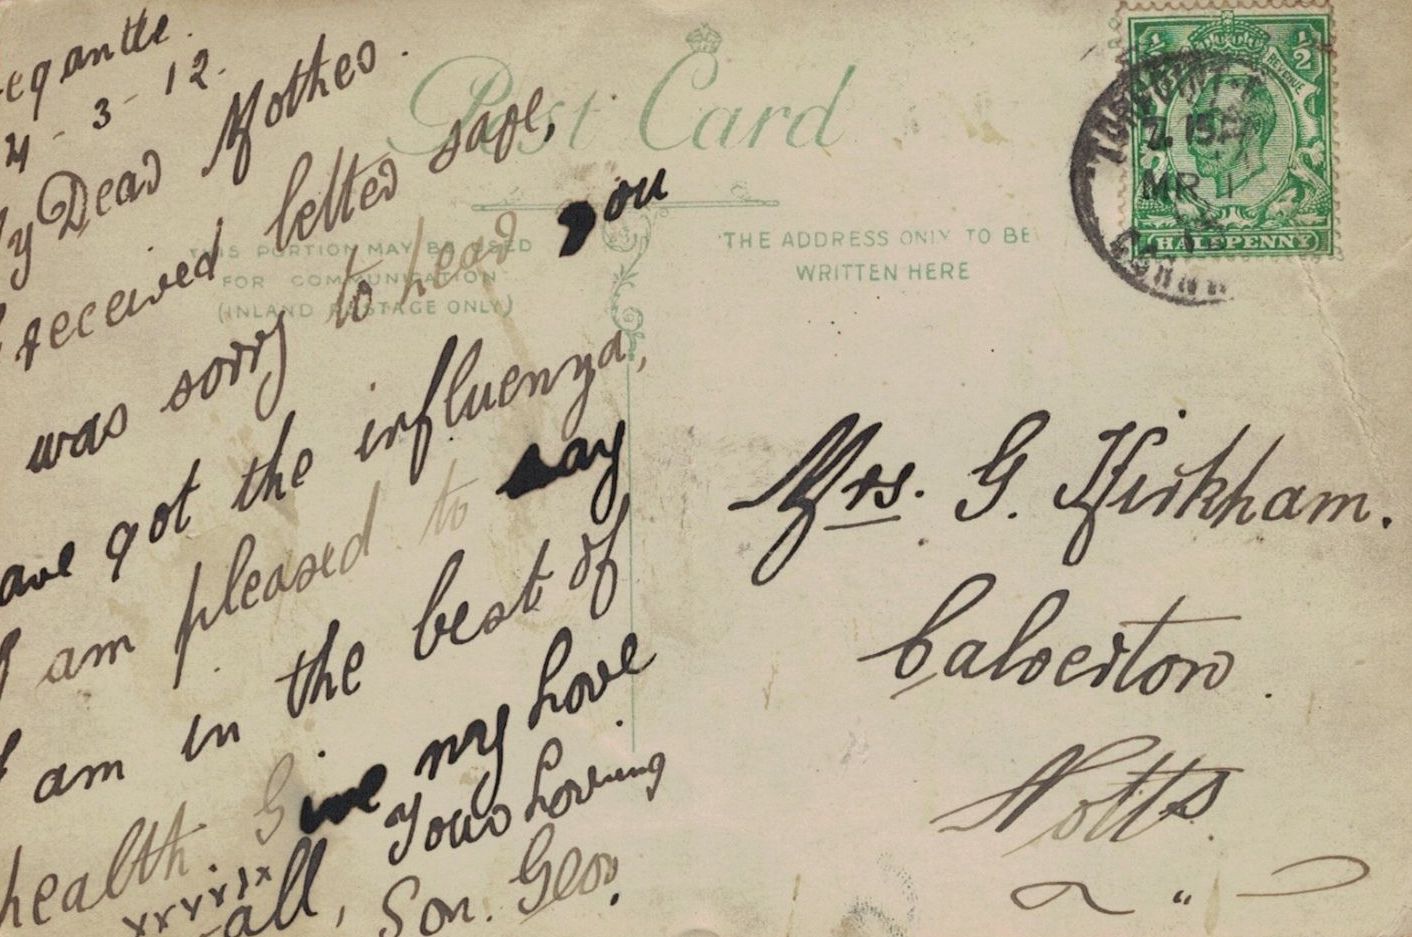 egantle.
4-3-12.
y Dear Mother.
I received letter safe,
was sorry to hear you
ave got the influenza,
I am pleased to say
I am in the best of
health. Give my Love
all, Your Loving
xxxxxx
Son. Geo.
Post Card
THIS PORTION MAY BE USED
FOR COMMUNICATION
(INLAND POSTAGE ONLY)
THE ADDRESS ONLY TO BE
WRITTEN HERE
½ ½
REVENUE
HALFPENNY
2.15P
MR
Mrs. G. Kirkham.
Calverton.
Notts.
"